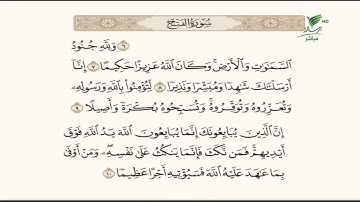 سُورَةُ الفَتْحِ
HD
مباشر
٦ وَلِلَّهِ جُنُودُ
السَّمَٰوَٰتِ وَالْأَرْضِ وَكَانَ اللَّهُ عَزِيزًا حَكِيمًا ٧ إِنَّا
أَرْسَلْنَٰكَ شَٰهِدًا وَمُبَشِّرًا وَنَذِيرًا ٨ لِّتُؤْمِنُوا بِاللَّهِ وَرَسُولِهِ
وَتُعَزِّرُوهُ وَتُوَقِّرُوهُ وَتُسَبِّحُوهُ بُكْرَةً وَأَصِيلًا ٩
إِنَّ الَّذِينَ يُبَايِعُونَكَ إِنَّمَا يُبَايِعُونَ اللَّهَ يَدُ اللَّهِ فَوْقَ
أَيْدِيهِمْ فَمَن نَّكَثَ فَإِنَّمَا يَنكُثُ عَلَىٰ نَفْسِهِ وَمَنْ أَوْفَىٰ
بِمَا عَٰهَدَ عَلَيْهُ اللَّهَ فَسَيُؤْتِيهِ أَجْرًا عَظِيمًا ١٠